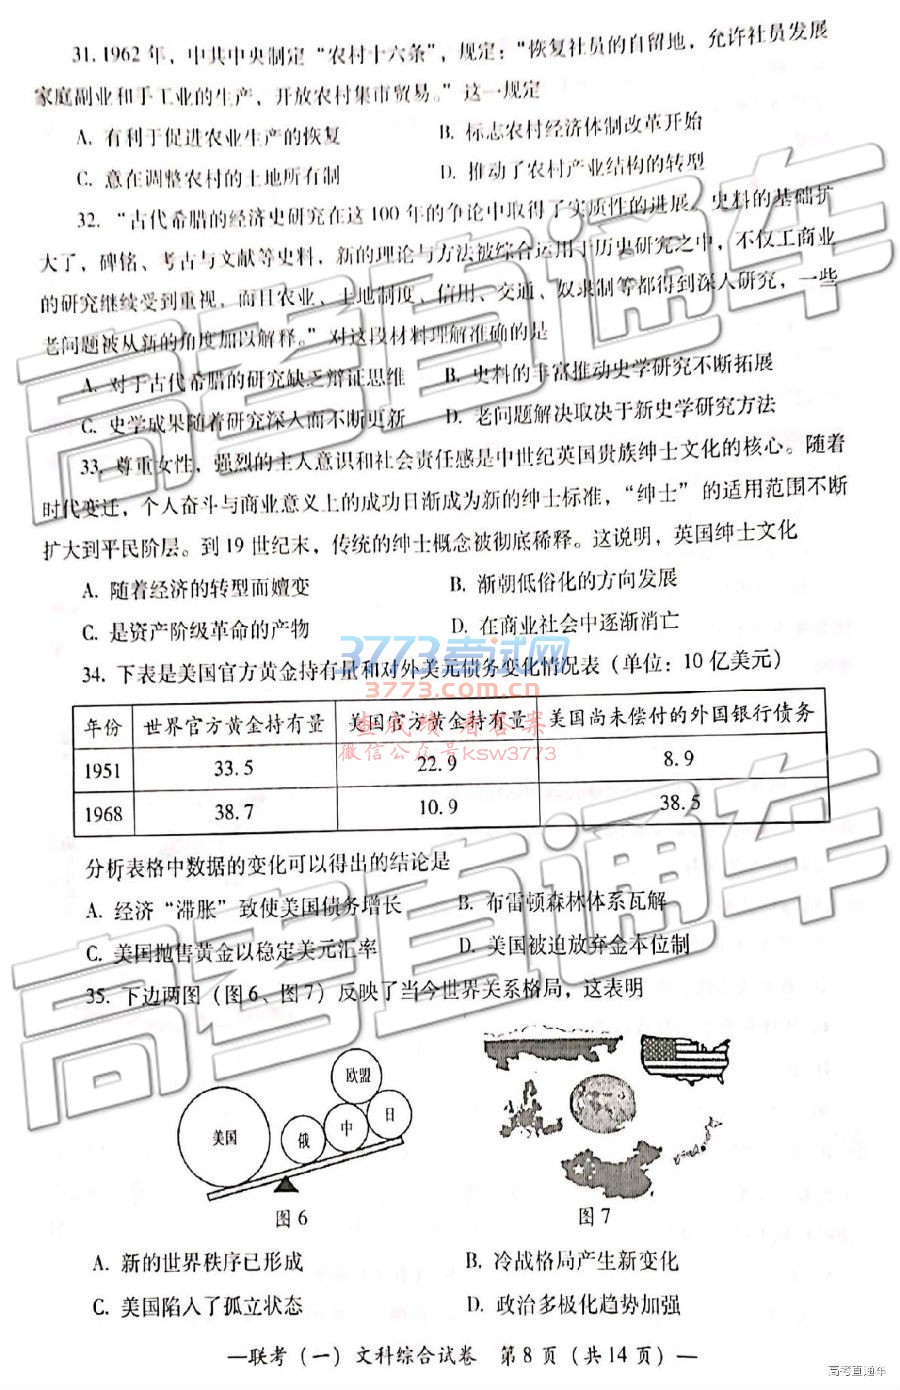 31. 1962 年，中共中央制定“农村十六条”，规定：“恢复社员的自留地，允许社员发展
家庭副业和手工业的生产，开放农村集市贸易。”这一规定
A. 有利于促进农业生产的恢复 B. 标志农村经济体制改革开始
C. 意在调整农村的土地所有制 D. 推动了农村产业结构的转型
32. “古代希腊的经济史研究在这 100 年的争论中取得了实质性的进展。史料的基础扩
大了，碑铭、考古与文献等史料，新的理论与方法被综合运用于历史研究之中，不仅工商业
的研究继续受到重视，而且农业、土地制度、信用、交通、奴隶制等都得到深入研究，一些
老问题被从新的角度加以解释。”对这段材料理解准确的是
A. 对于古代希腊的研究缺乏辩证思维 B. 史料的丰富推动史学研究不断拓展
C. 史学成果随着研究深入而不断更新 D. 老问题解决取决于新史学研究方法
33. 尊重女性，强烈的主人意识和社会责任感是中世纪英国贵族绅士文化的核心。随着
时代变迁，个人奋斗与商业意义上的成功日渐成为新的绅士标准，“绅士”的适用范围不断
扩大到平民阶层。到 19 世纪末，传统的绅士概念被彻底稀释。这说明，英国绅士文化
A. 随着经济的转型而嬗变 B. 渐朝低俗化的方向发展
C. 是资产阶级革命的产物 D. 在商业社会中逐渐消亡
34. 下表是美国官方黄金持有量和对外美元债务变化情况表（单位：10 亿美元）
年份 世界官方黄金持有量 美国官方黄金持有量 美国尚未偿付的外国银行债务
1951 33.5 22.9 8.9
1968 38.7 10.9 38.5
分析表格中数据的变化可以得出的结论是
A. 经济“滞胀”致使美国债务增长 B. 布雷顿森林体系瓦解
C. 美国抛售黄金以稳定美元汇率 D. 美国被迫放弃金本位制
35. 下边两图（图 6、图 7）反映了当今世界关系格局，这表明
美国 俄 中 日 欧盟
图 6 图 7
A. 新的世界秩序已形成 B. 冷战格局产生新变化
C. 美国陷入了孤立状态 D. 政治多极化趋势加强
—联考（一）文科综合试卷 第 8 页（共 14 页）—
高考直通车
高考直通车
3773考试网
3773.com.cn
查成绩 看答案
微信公众号ksw3773
高考直通车